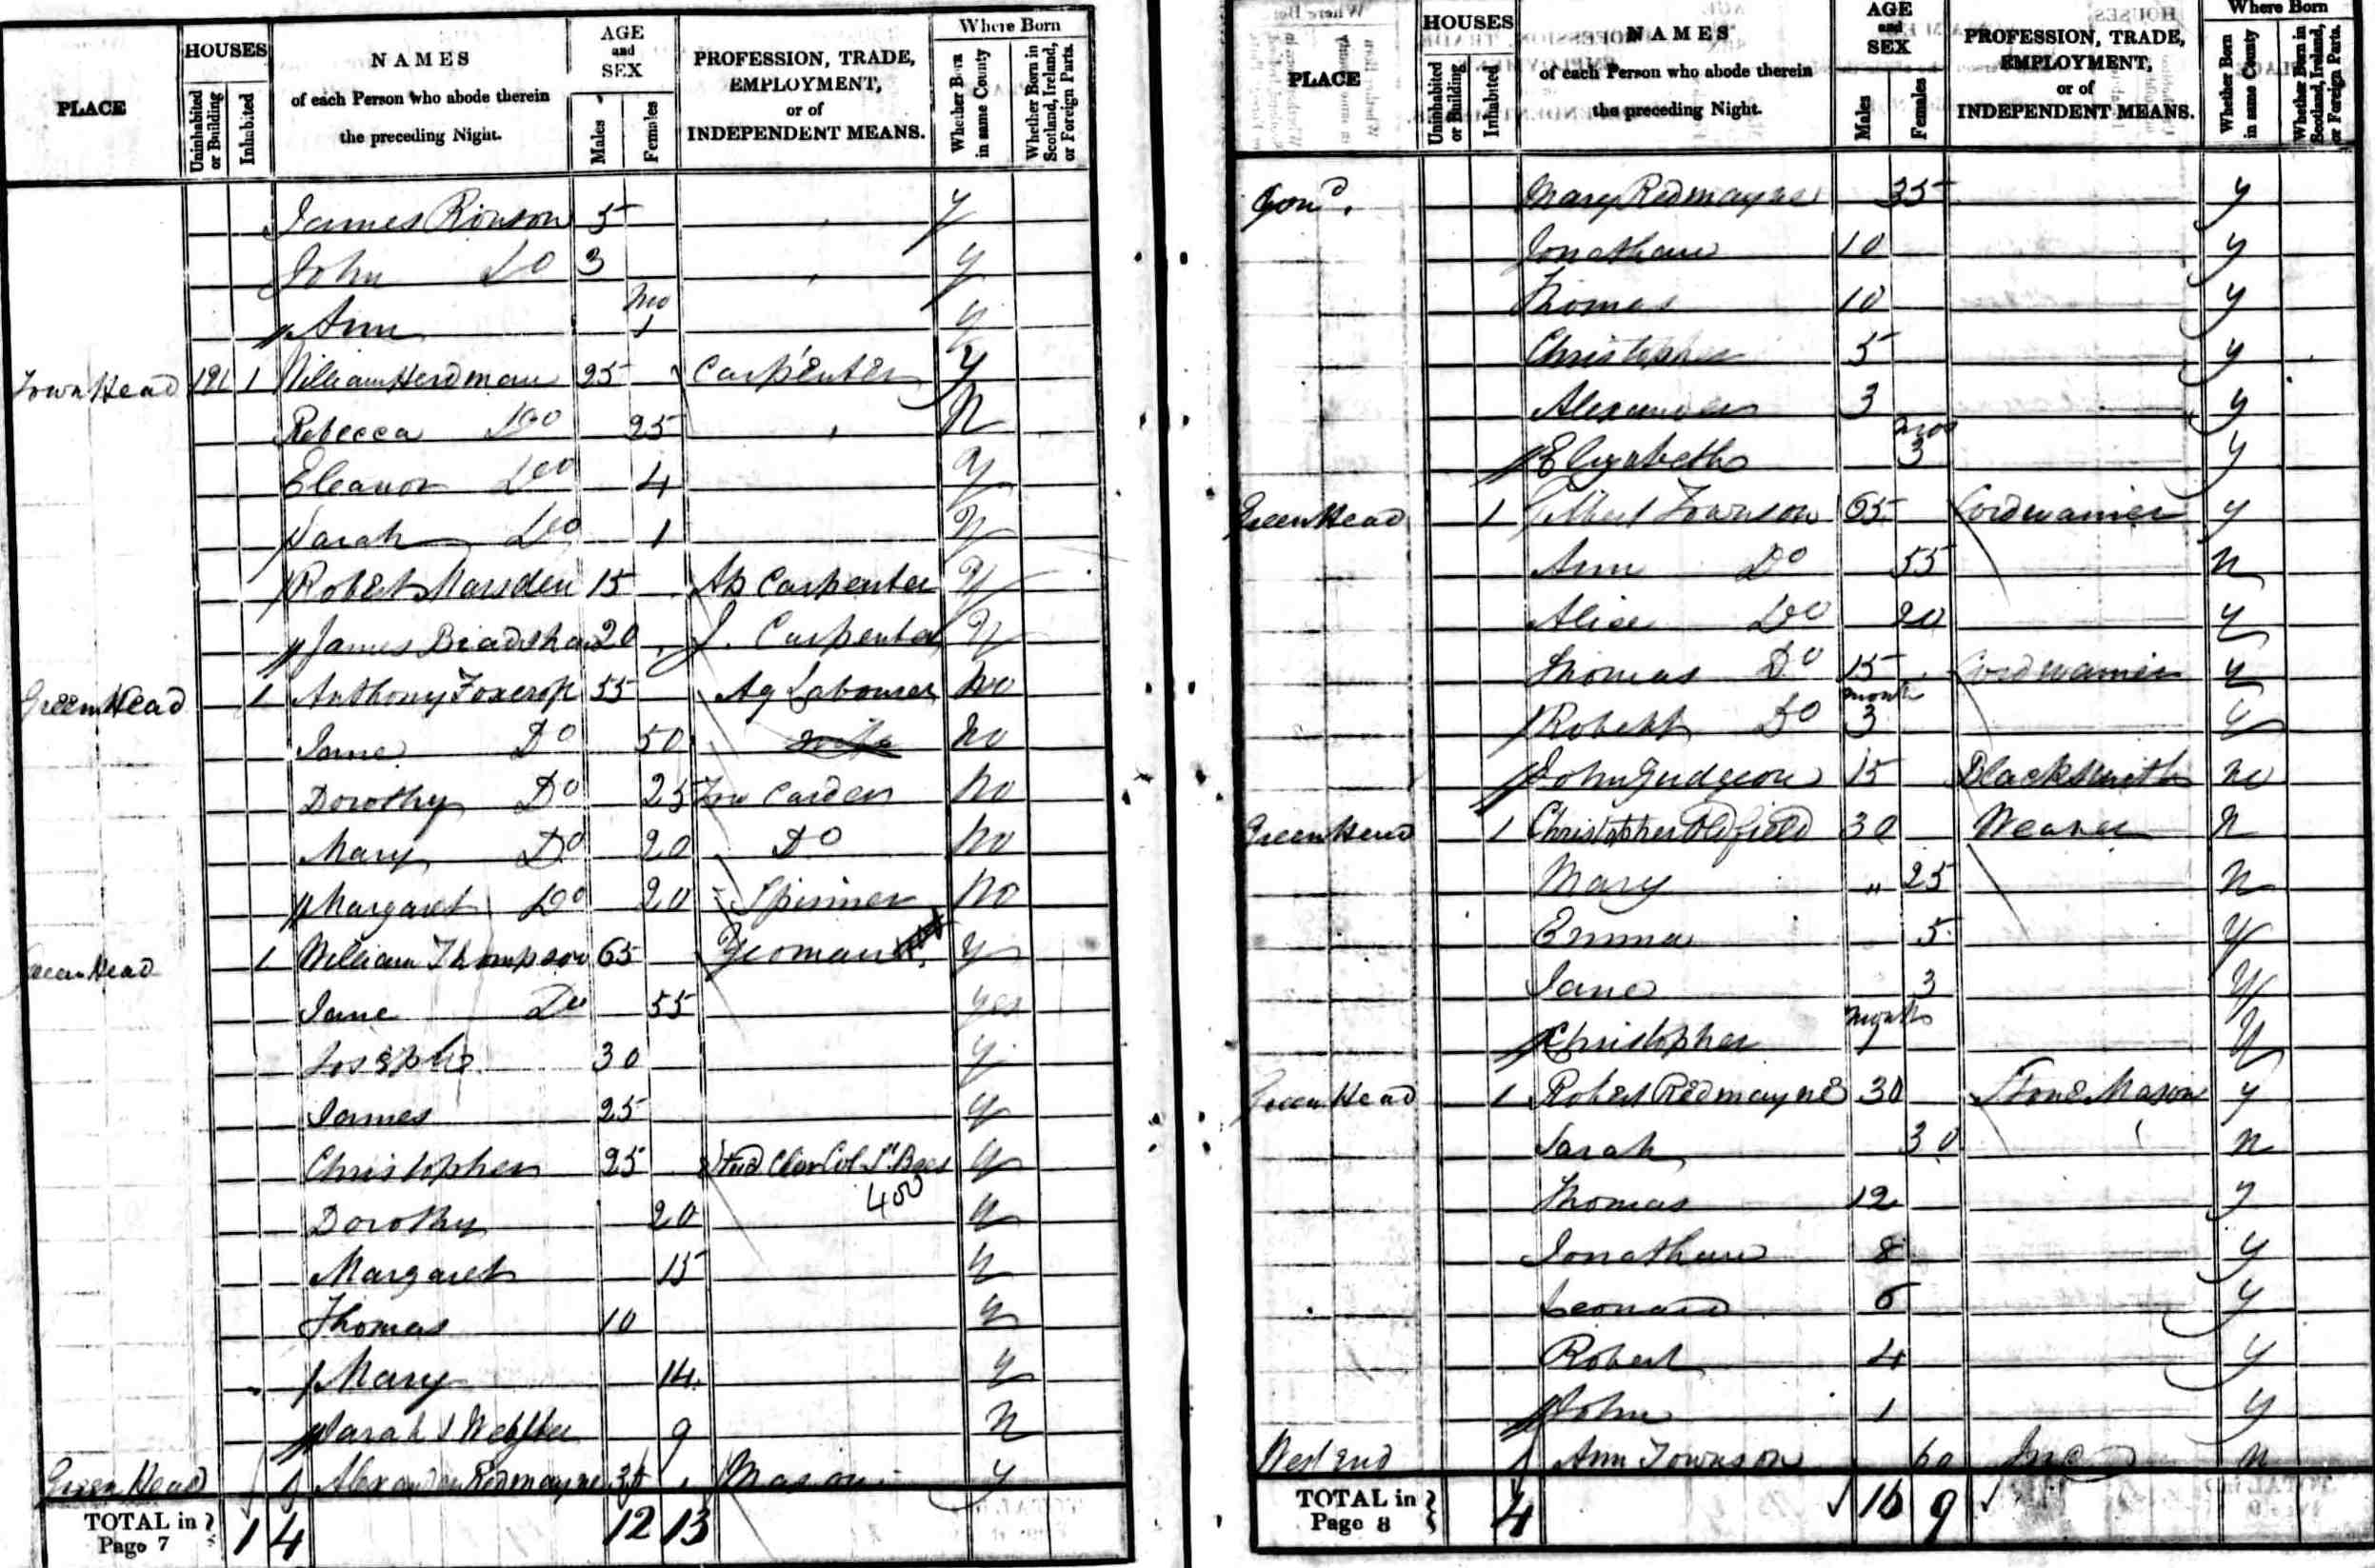 PLACE HOUSES Uninhabited or Building Inhabited NAMES of each Person who abode therein the preceding Night. AGE and SEX Males Females PROFESSION, TRADE, EMPLOYMENT, or of INDEPENDENT MEANS. Where Born Whether Born in same County Whether Born in Scotland, Ireland, or Foreign Parts.
James Rowson 5 y
John Do 3 y
Ann mo 1 y
Town Head 1 William Herdman 25 Carpenter y
Rebecca Do 25 N
Eleanor Do 4 y
Sarah Do 1 y
Robert Marsden 15 Ap Carpenter y
James Bradshaw 20 J. Carpenter y
Green Head 1 Anthony Foxcroft 55 Ag Labourer No
Jane Do 50 wife No
Dorothy Do 25 Tow Carder No
Mary Do 20 Do No
Margaret Do 20 Spinner No
Green Head 1 William Thompson 65 Yeoman y
Jane Do 55 yes
Joseph 30 y
James 25 y
Christopher 25 Stud Cler Col St Bees y
400
Dorothy 20 y
Margaret 15 y
Thomas 10 y
Mary 14 y
Sarah Webster 9 N
Green Head 1 Alexander Redmayne Mason y
TOTAL in Page 7 1 4 12 13
PLACE HOUSES Uninhabited or Building Inhabited NAMES of each Person who abode therein the preceding Night. AGE and SEX Males Females PROFESSION, TRADE, EMPLOYMENT, or of INDEPENDENT MEANS. Where Born Whether Born in same County Whether Born in Scotland, Ireland, or Foreign Parts.
Cond. Mary Redmayne 35 y
Jonathan 10 y
Thomas 10 y
Christopher 5 y
Alexander 3 y
Elizabeth mos 3 y
Green Head 1 Gilbert Townson 65 Cordwainer y
Ann Do 55 N
Alice Do 20 y
Thomas Do 15 Cordwainer y
Robert Do month 3 y
John Gudgeon 15 Blacksmith no
Green Head 1 Christopher Oldfield 30 Weaver N
Mary " 25 N
Emma 5 y
Jane 3 y
Christopher months y
Green Head 1 Robert Redmayne 30 Stone Mason y
Sarah 30 N
Thomas 12 y
Jonathan 8 y
Leonard 6 y
Robert 4 y
John 1 y
West End 1 Ann Townson 60 Ind N
TOTAL in Page 8 4 16 9